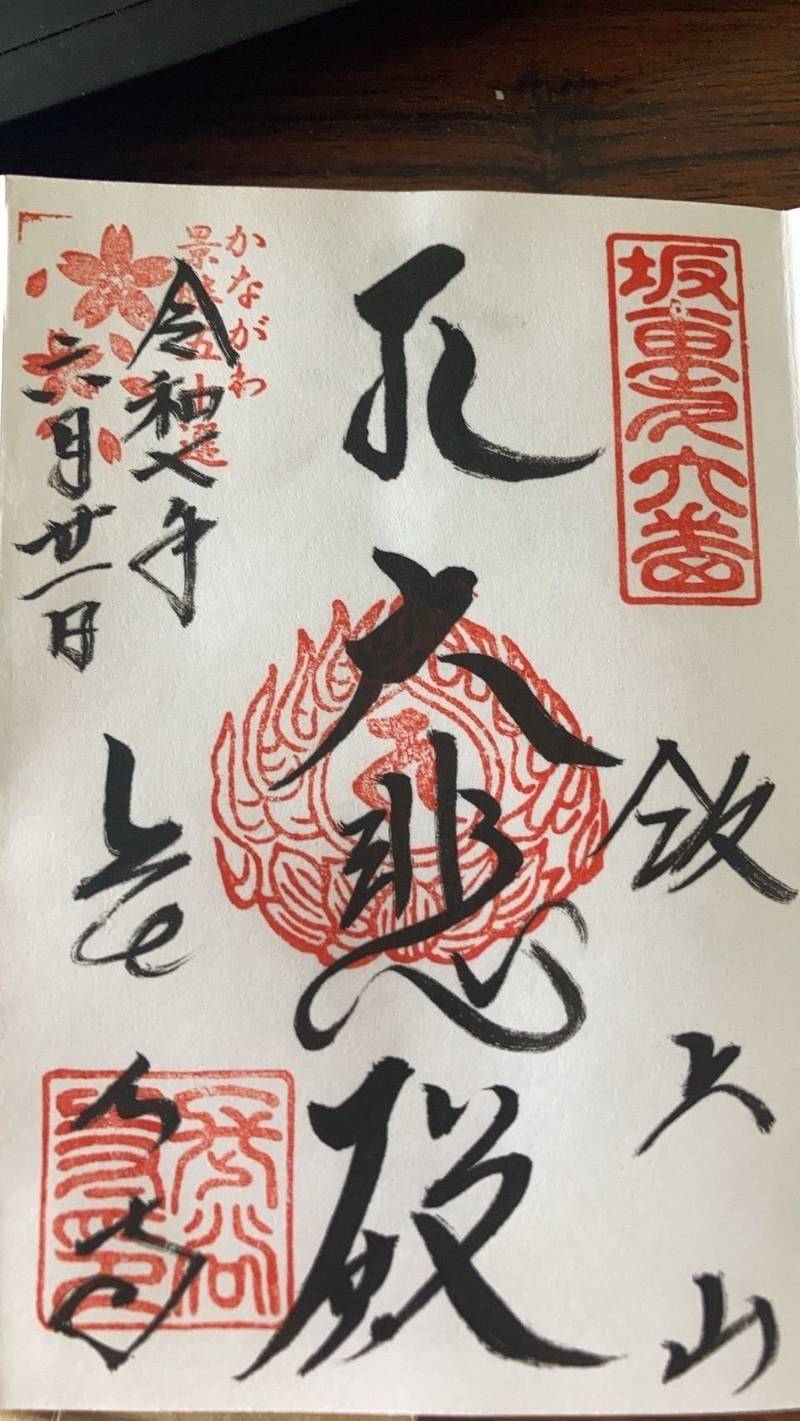 坂東第六番
飯上山
大悲殿
かながわ
景勝五十選
令和七年
六月廿一日
長谷寺
長谷
寺印